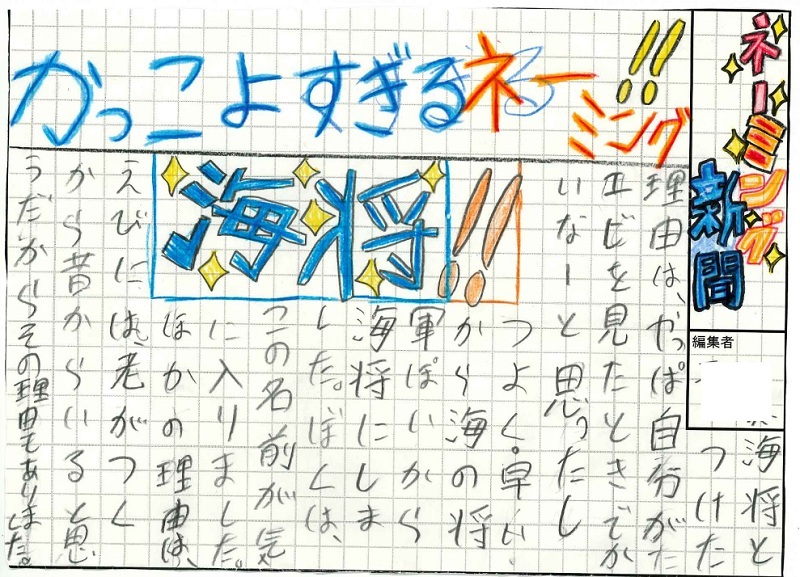 ネーミング
新聞
編集者
かっこよすぎるネー
ミング!!
海将!!
海将と
つけた
理由は、やっぱ自分がた
エビを見たときでか
いなーと思ったし
つよく。早い。
から海の将
軍ぽいから
海将にしま
した。ぼくは、
この名前が気
に入りました。
ほかの理由は、
えびには、老がつく
から昔からいると思
うだからその理由でありま
した。